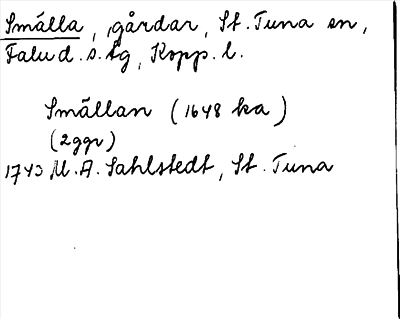 Smälla, gårdar, St. Tuna sn,
Falu d.s. lg, Kopp. l.
Smällan (1648 ka)
(2ggr)
1743 M. A. Sahlstedt, St. Tuna